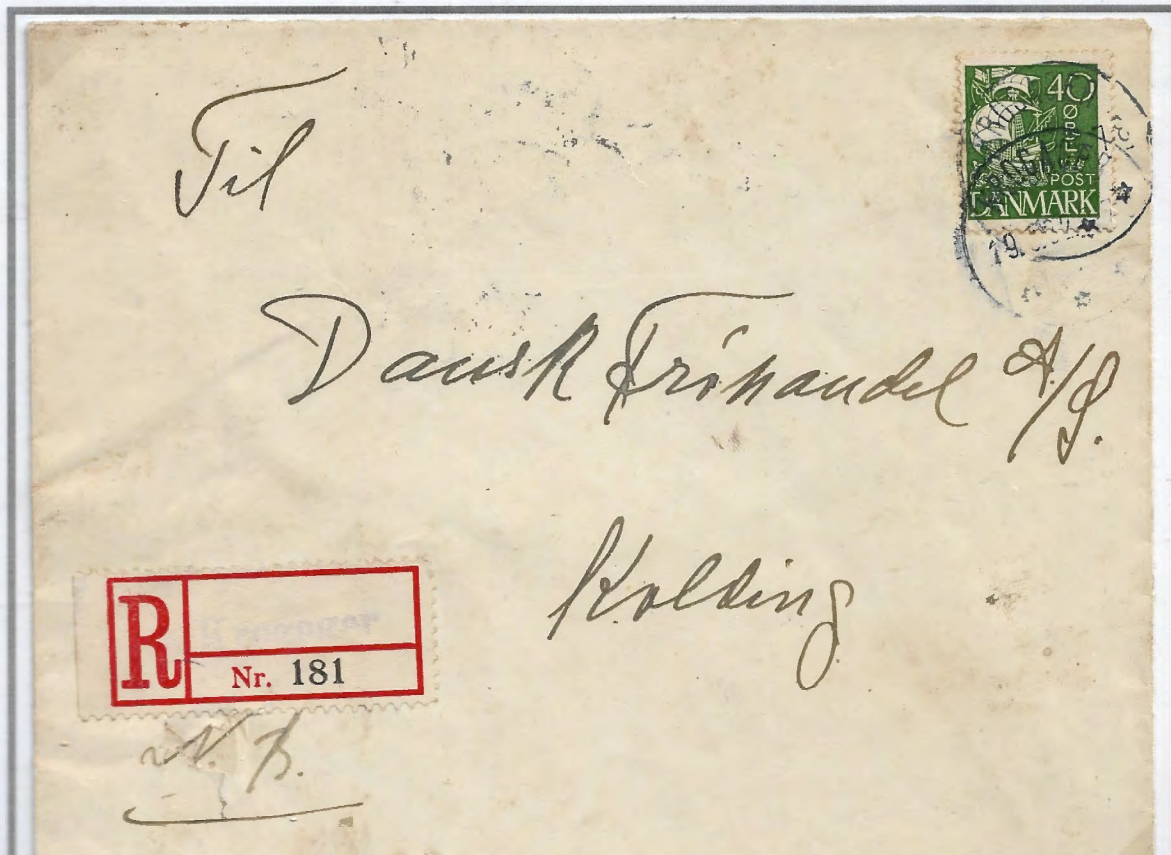 Til
40
ØRE
POST
DANMARK
Dansk Fröhandel A/S.
Kolding
R
Nr. 181
N. B.